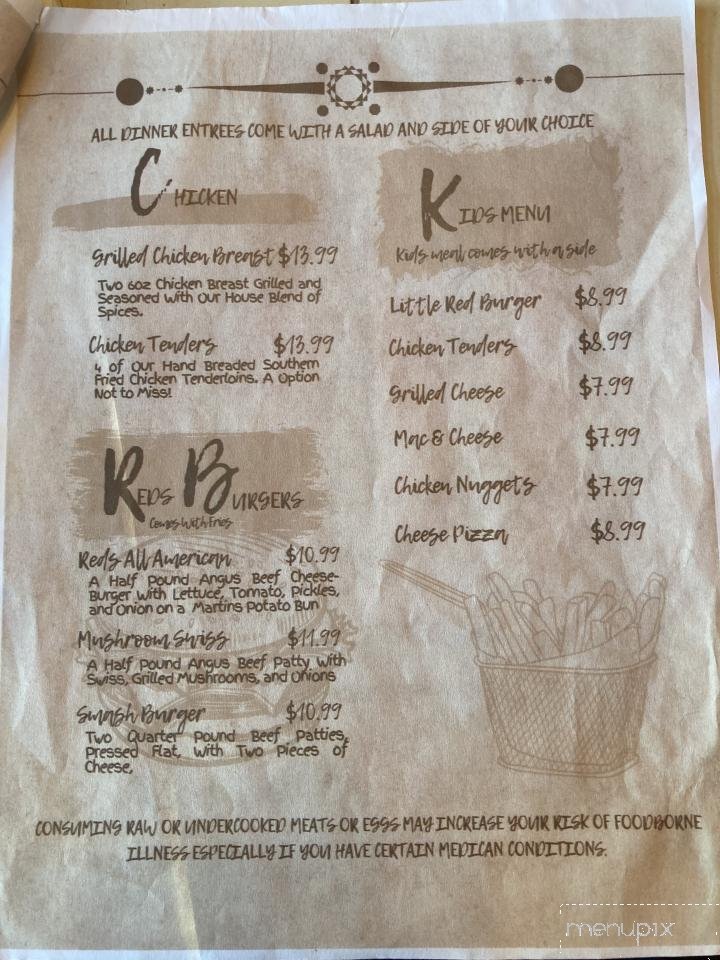 ALL DINNER ENTREES COME WITH A SALAD AND SIDE OF YOUR CHOICE
CHICKEN
Grilled Chicken Breast $13.99
Two 6oz Chicken Breast Grilled and
Seasoned with Our House Blend of
Spices.
Chicken Tenders $13.99
4 of Our Hand Breaded Southern
Fried Chicken Tenderloins. A Option
Not to Miss!
REDS BURGERS
Comes With Fries
Reds All American $10.99
A Half Pound Angus Beef Cheese-
Burger With Lettuce, Tomato, Pickles,
and Onion on a Martins Potato Bun
Mushroom Swiss $11.99
A Half Pound Angus Beef Patty With
Swiss, Grilled Mushrooms, and Onions
Smash Burger $10.99
Two Quarter Pound Beef Patties,
Pressed Flat, With Two Pieces of
Cheese,
KIDS MENU
Kids meal comes with a side
Little Red Burger $8.99
Chicken Tenders $8.99
Grilled Cheese $7.99
Mac & Cheese $7.99
Chicken Nuggets $7.99
Cheese Pizza $8.99
CONSUMING RAW OR UNDERCOOKED MEATS OR EGGS MAY INCREASE YOUR RISK OF FOODBORNE
ILLNESS ESPECIALLY IF YOU HAVE CERTAIN MEDICAN CONDITIONS.
menupix